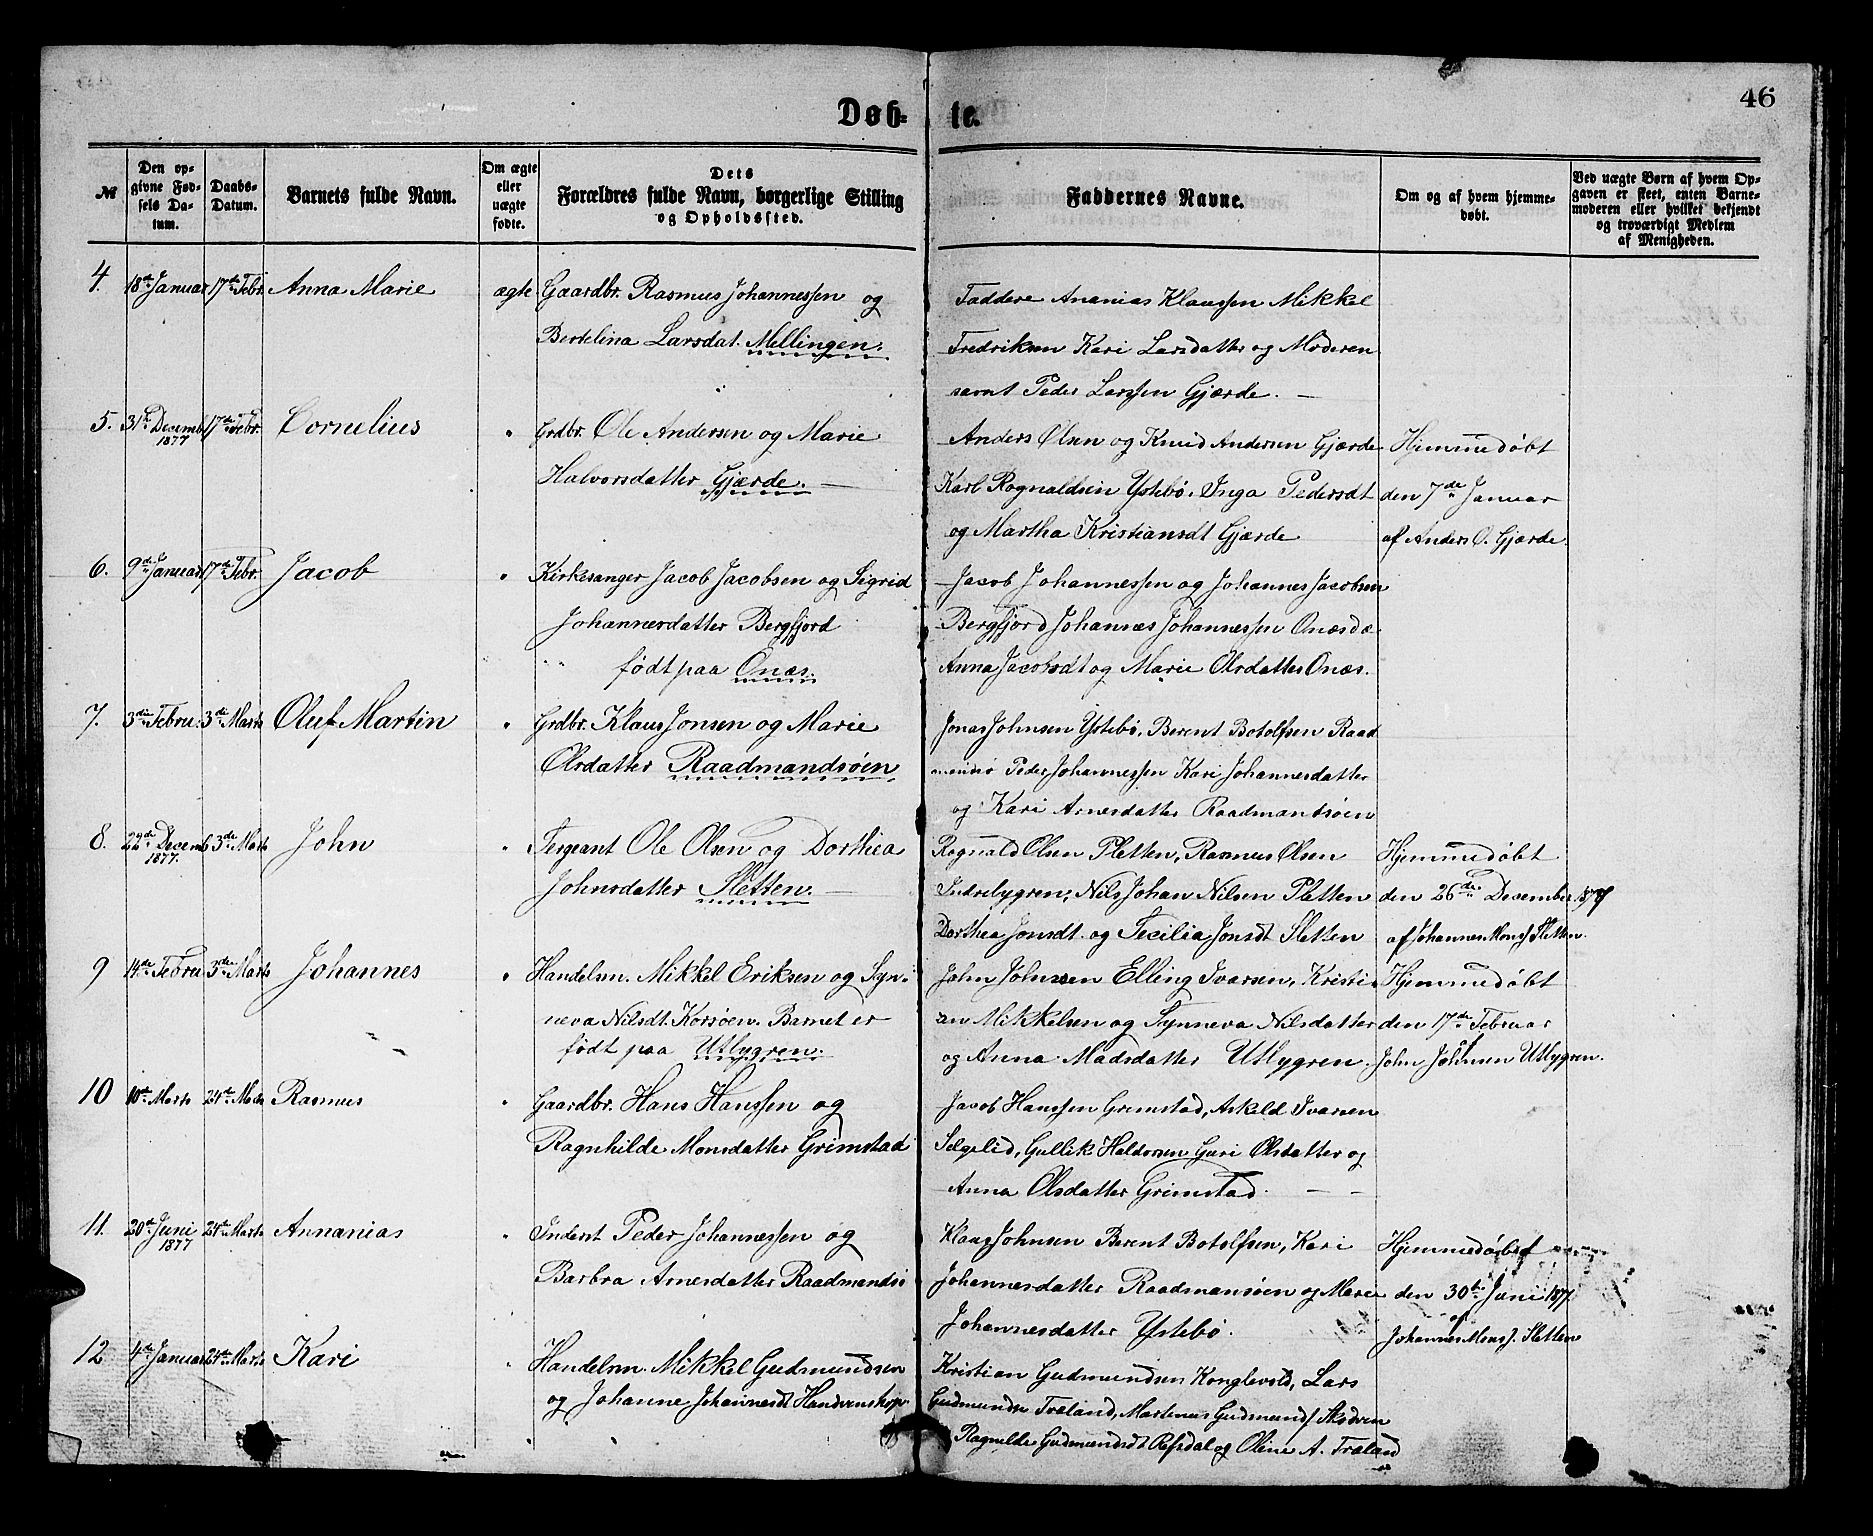 46
Døb- te.
№
Den opgivne Fødsels Datum.
Daabs-Datum.
Barnets fulde Navn.
Om ægte eller uægte fødte.
Dets Forældres fulde Navn, borgerlige Stilling og Opholdssted.
Faddernes Navne.
Om og af hvem hjemmedøbt.
Ved uægte Børn af hvem Opgaven er skeet, enten Barnemoderen eller hvilket bekjendt og troværdigt Medlem af Menigheden.
4. 18de Januar 17de Febr. Anna Marie ægte Gaardbr. Rasmus Johannessen og
Bertelina Larsdat. Mellingen.
Faddere Ananias Klaussen Mikkel
Fredriksen Kari Larsdatter og Moderen
samt Peder Larssen Gjærde.
5. 31te Decemb 1877 17de Febr. Cornelius " Grdbr. Ole Andersen og Marie
Halvorsdatter Gjærde.
Anders Olsen og Knud Andersen Gjærde
Karl Rognaldsen Ystebö, Inga Pedersdt
og Martha Kristiansdt Gjærde
Hjemmedöbt
den 7de Januar
af Anders O. Gjærde.
6. 9de Januar 17de Febr. Jacob " Kirkesanger Jacob Jacobsen og Sigrid
Johannesdatter Bergfjord
født paa Onæs.
Jacob Johannessen og Johannes Jacobsen
Bergfjord Johannes Johannessen Onæs
Anna Jacobsdt og Marie Olsdatter Onæs.
7. 3die Febru. 3die Marts Oluf Martin " Grdbr. Klaus Jonsen og Marie
Olsdatter Raadmandsöen
Jonas Johnsen Ystebö, Berent Botolfsen Raad
mandsö Peder Johannessen Kari Johannesdatter
og Kari Arnesdatter Raadmandsöen
8. 22de Decemb 1877. 3die Marts John " Sergeant Ole Olsen og Dorthea
Johnsdatter Sletten.
Rognald Olsen Sletten, Rasmus Olsen
Indrebygren, Nils Johan Nilsen Sletten
Dorthea Jonsdt. og Cecilia Jonsdt Sletten
Hjemmedöbt
den 26de December 1877
af Johannes Monss. Sletten.
9 14de Febru 3die Marts Johannes " Handelsm. Mikkel Eriksen og Syn-
neva Nilsdt. Korsöen. Barnet er
født paa Utbygren.
John Johnsen Elling Ivarsen, Kristi-
an Mikkelsen og Synneva Nilsdatter
og Anna Madsdatter Utbygren.
Hjemmedöbt
den 17de Februar
af
John Johnsen Utbygren.
10 10de Marts 24de Marts Rasmus " Gaardbr. Hans Hanssen og
Ragnhilde Monsdatter Grimstad
Jacob Hanssen Grimstad, Askild Ivarsen
Selgelid, Gullik Haldorsen Guri Olsdatter og
Anna Olsdatter Grimstad.
11. 20de Juni 1877 24de Marts Annanias " Inderst Peder Johannessen og
Barbra Arnesdatter Raadmandsö
Klaus Johnsen Berent Botolfsen, Kari
Johannesdatter Raadmansöen og Marie
Johannesdatter Ystebö.
Hjemmedöbt
den 30te Juni 1877.
af
Johannes Monss. Sletten
12 4de Januar 24de Marts Kari " Handelsm. Mikkel Gudmundsen
og Johanne Johannesdt
Kristian Gudmundsen Konglevold, Lars
Gudmundsn Træland, Martinus Gudmunds.
Ragnilde Gudmundsdt Refsdal og Oline A. Træland